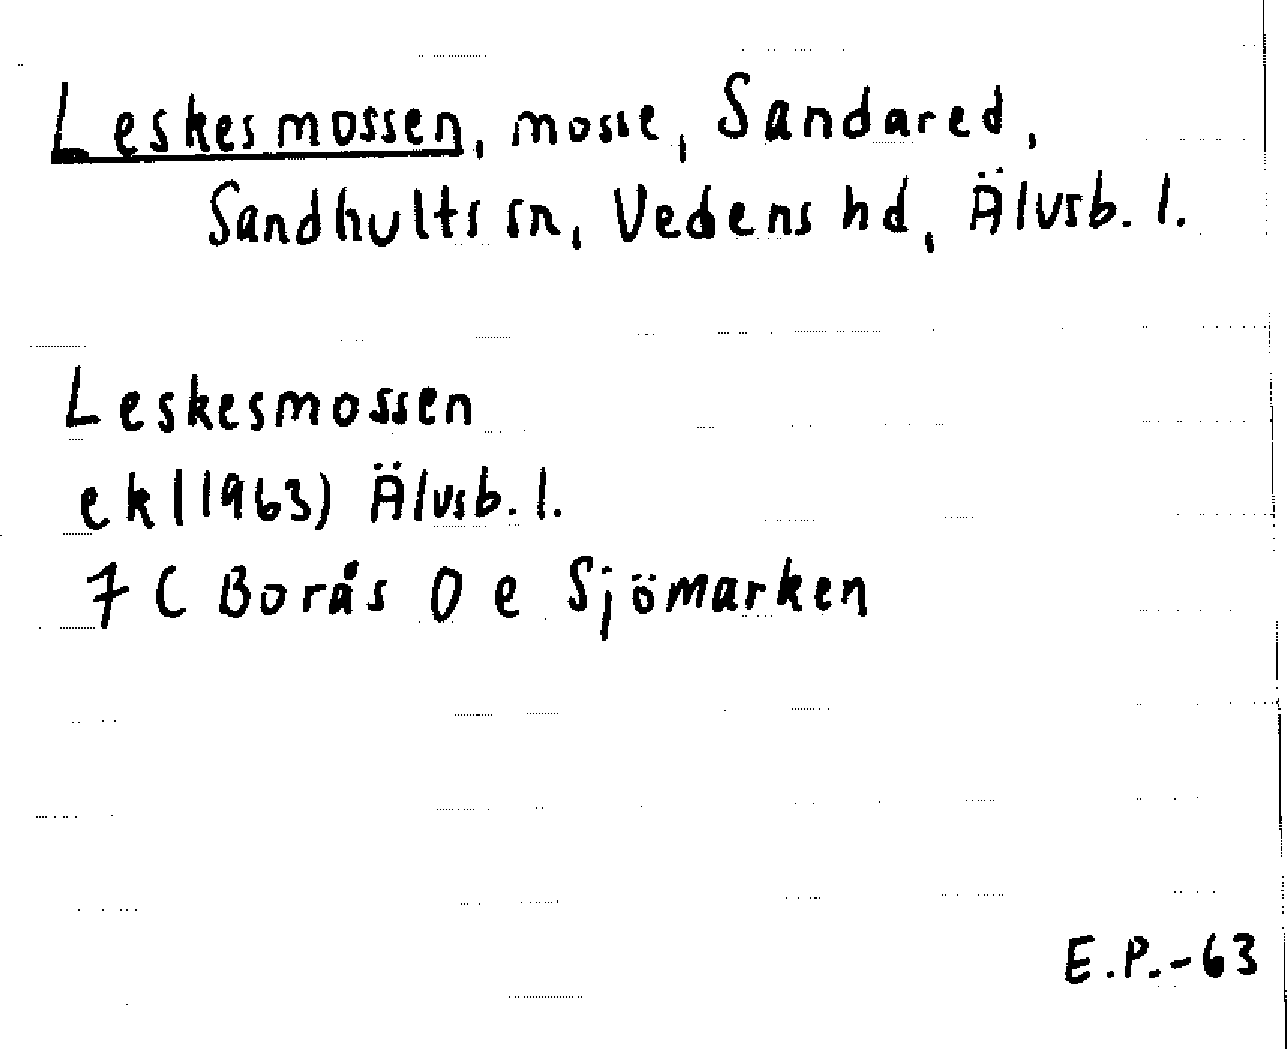 Leskesmossen, mosse, Sandared,
Sandhults sn, Vedens hd, Älvsb. l.
Leskesmossen
ekl(1963) Älvsb. l.
7 C Borås 0 e Sjömarken
E.P.-63